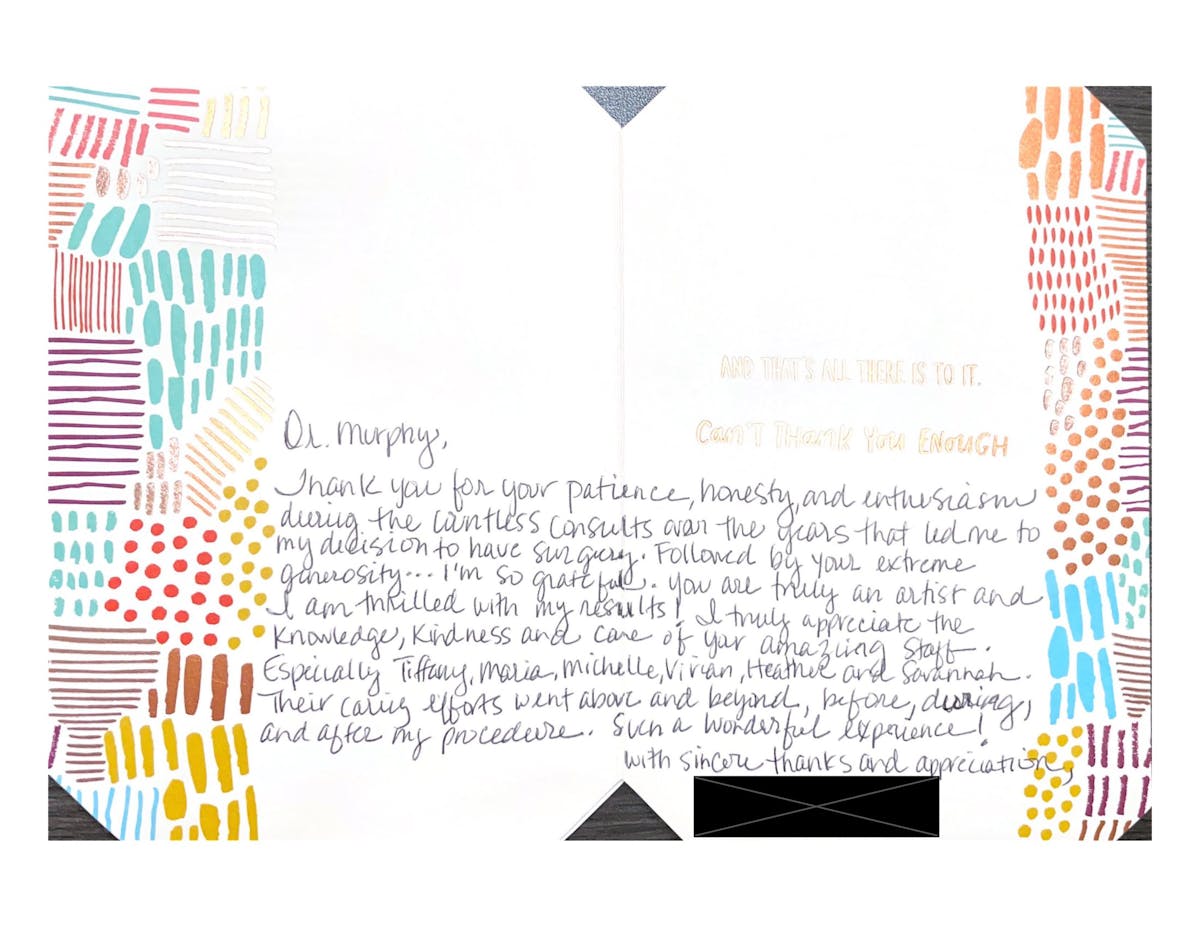 AND THAT'S ALL THERE IS TO IT.
Can't Thank You Enough
Dr. Murphy,
Thank you for your patience, honesty, and enthusiasm
during the countless consults over the years that led me to
my decision to have surgery. Followed by your extreme
generosity... I'm so grateful. You are truly an artist and
I am thrilled with my results! I truly appreciate the
knowledge, kindness and care of your amazing staff.
Especially Tiffany, Maria, Michelle, Vivian, Heather and Savannah.
Their caring efforts went above and beyond, before, during,
and after my procedure. Such a wonderful experience!
with sincere thanks and appreciation,